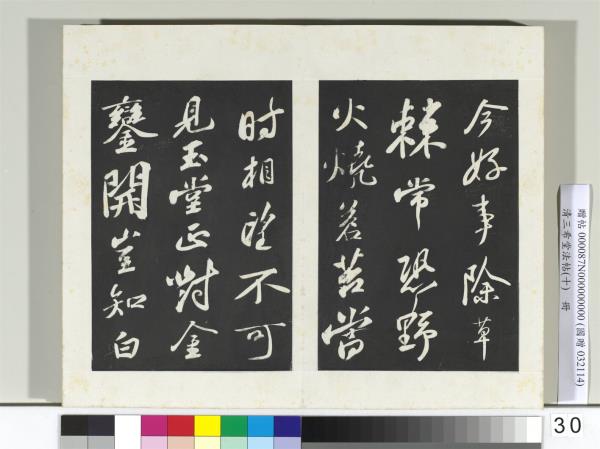 今好事除草
棘常恐野
火燒蒼苔當
時相望不可
見玉堂正對金
鑾開豈知白
贈帖 000087N000000000 (國贈 032114)
清三希堂法帖(十) 冊
30